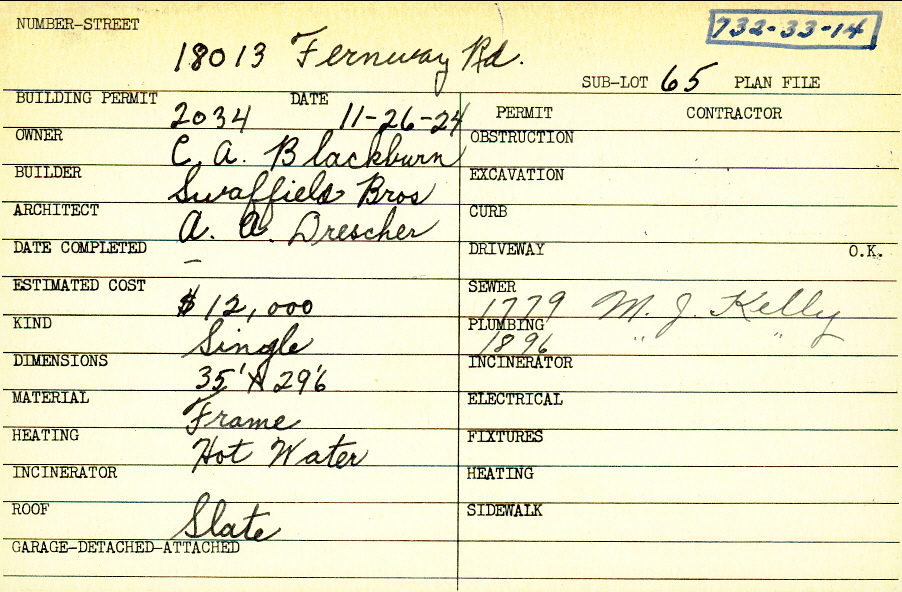 NUMBER-STREET 18013 Fernway Rd.
732-33-14
SUB-LOT 65 PLAN FILE
BUILDING PERMIT 2034 DATE 11-26-24
OWNER C. A. Blackburn
BUILDER Swaffield Bros
ARCHITECT A. A. Drescher
DATE COMPLETED –
ESTIMATED COST $12,000
KIND Single
DIMENSIONS 35' X 29'6
MATERIAL Frame
HEATING Hot Water
INCINERATOR
ROOF Slate
GARAGE-DETACHED-ATTACHED
PERMIT CONTRACTOR
OBSTRUCTION
EXCAVATION
CURB
DRIVEWAY O.K.
SEWER 1779 M. J. Kelly
PLUMBING 1896 " "
INCINERATOR
ELECTRICAL
FIXTURES
HEATING
SIDEWALK